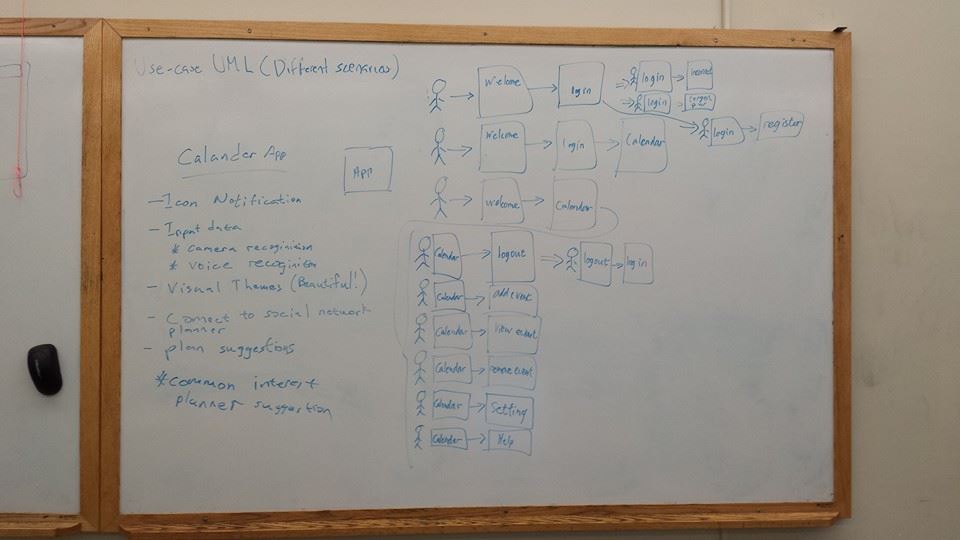 Use-case UML (Different scenarios)
Calander App
App
- Icon Notification
- Input data
* camera recoginision
* voice recoginision
- Visual Themes (Beautiful!)
- Connect to social network
planner
- plan suggestions
* common interest
planner suggestion
Welcome login login login
login register
Welcome login Calendar
Welcome Calendar
Calendar logout logout login
Calendar add event
Calendar view event
Calendar remove event
Calendar Setting
Calendar Help